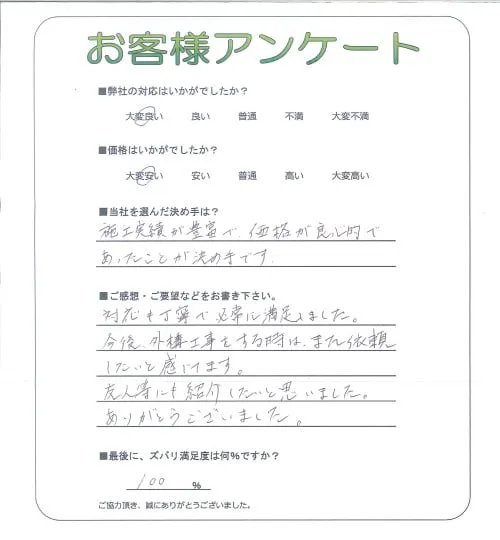 お客様アンケート
■弊社の対応はいかがでしたか？
大変良い 良い 普通 不満 大変不満
■価格はいかがでしたか？
大変安い 安い 普通 高い 大変高い
■当社を選んだ決め手は？
施工実績が豊富で、価格が良心的で
あったことが決め手です。
■ご感想・ご要望などをお書き下さい。
対応も丁寧で非常に満足しました。
今後、外構工事をする時は、また依頼
したいと感じてます。
友人等にも紹介したいと思いました。
ありがとうございました。
■最後に、ズバリ満足度は何%ですか？
100 %
ご協力頂き、誠にありがとうございました。